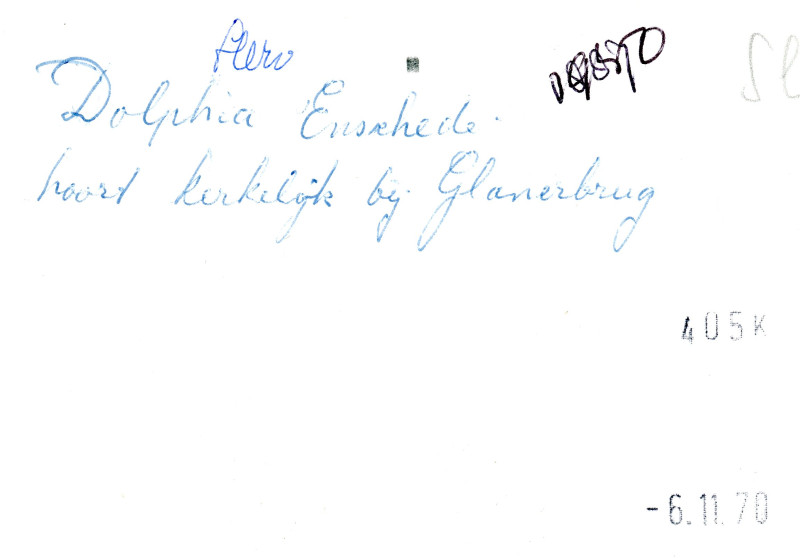 Aero
Dolphia Enschede.
hoort kerkelijk bij Glanerbrug
405K
-6.11.70